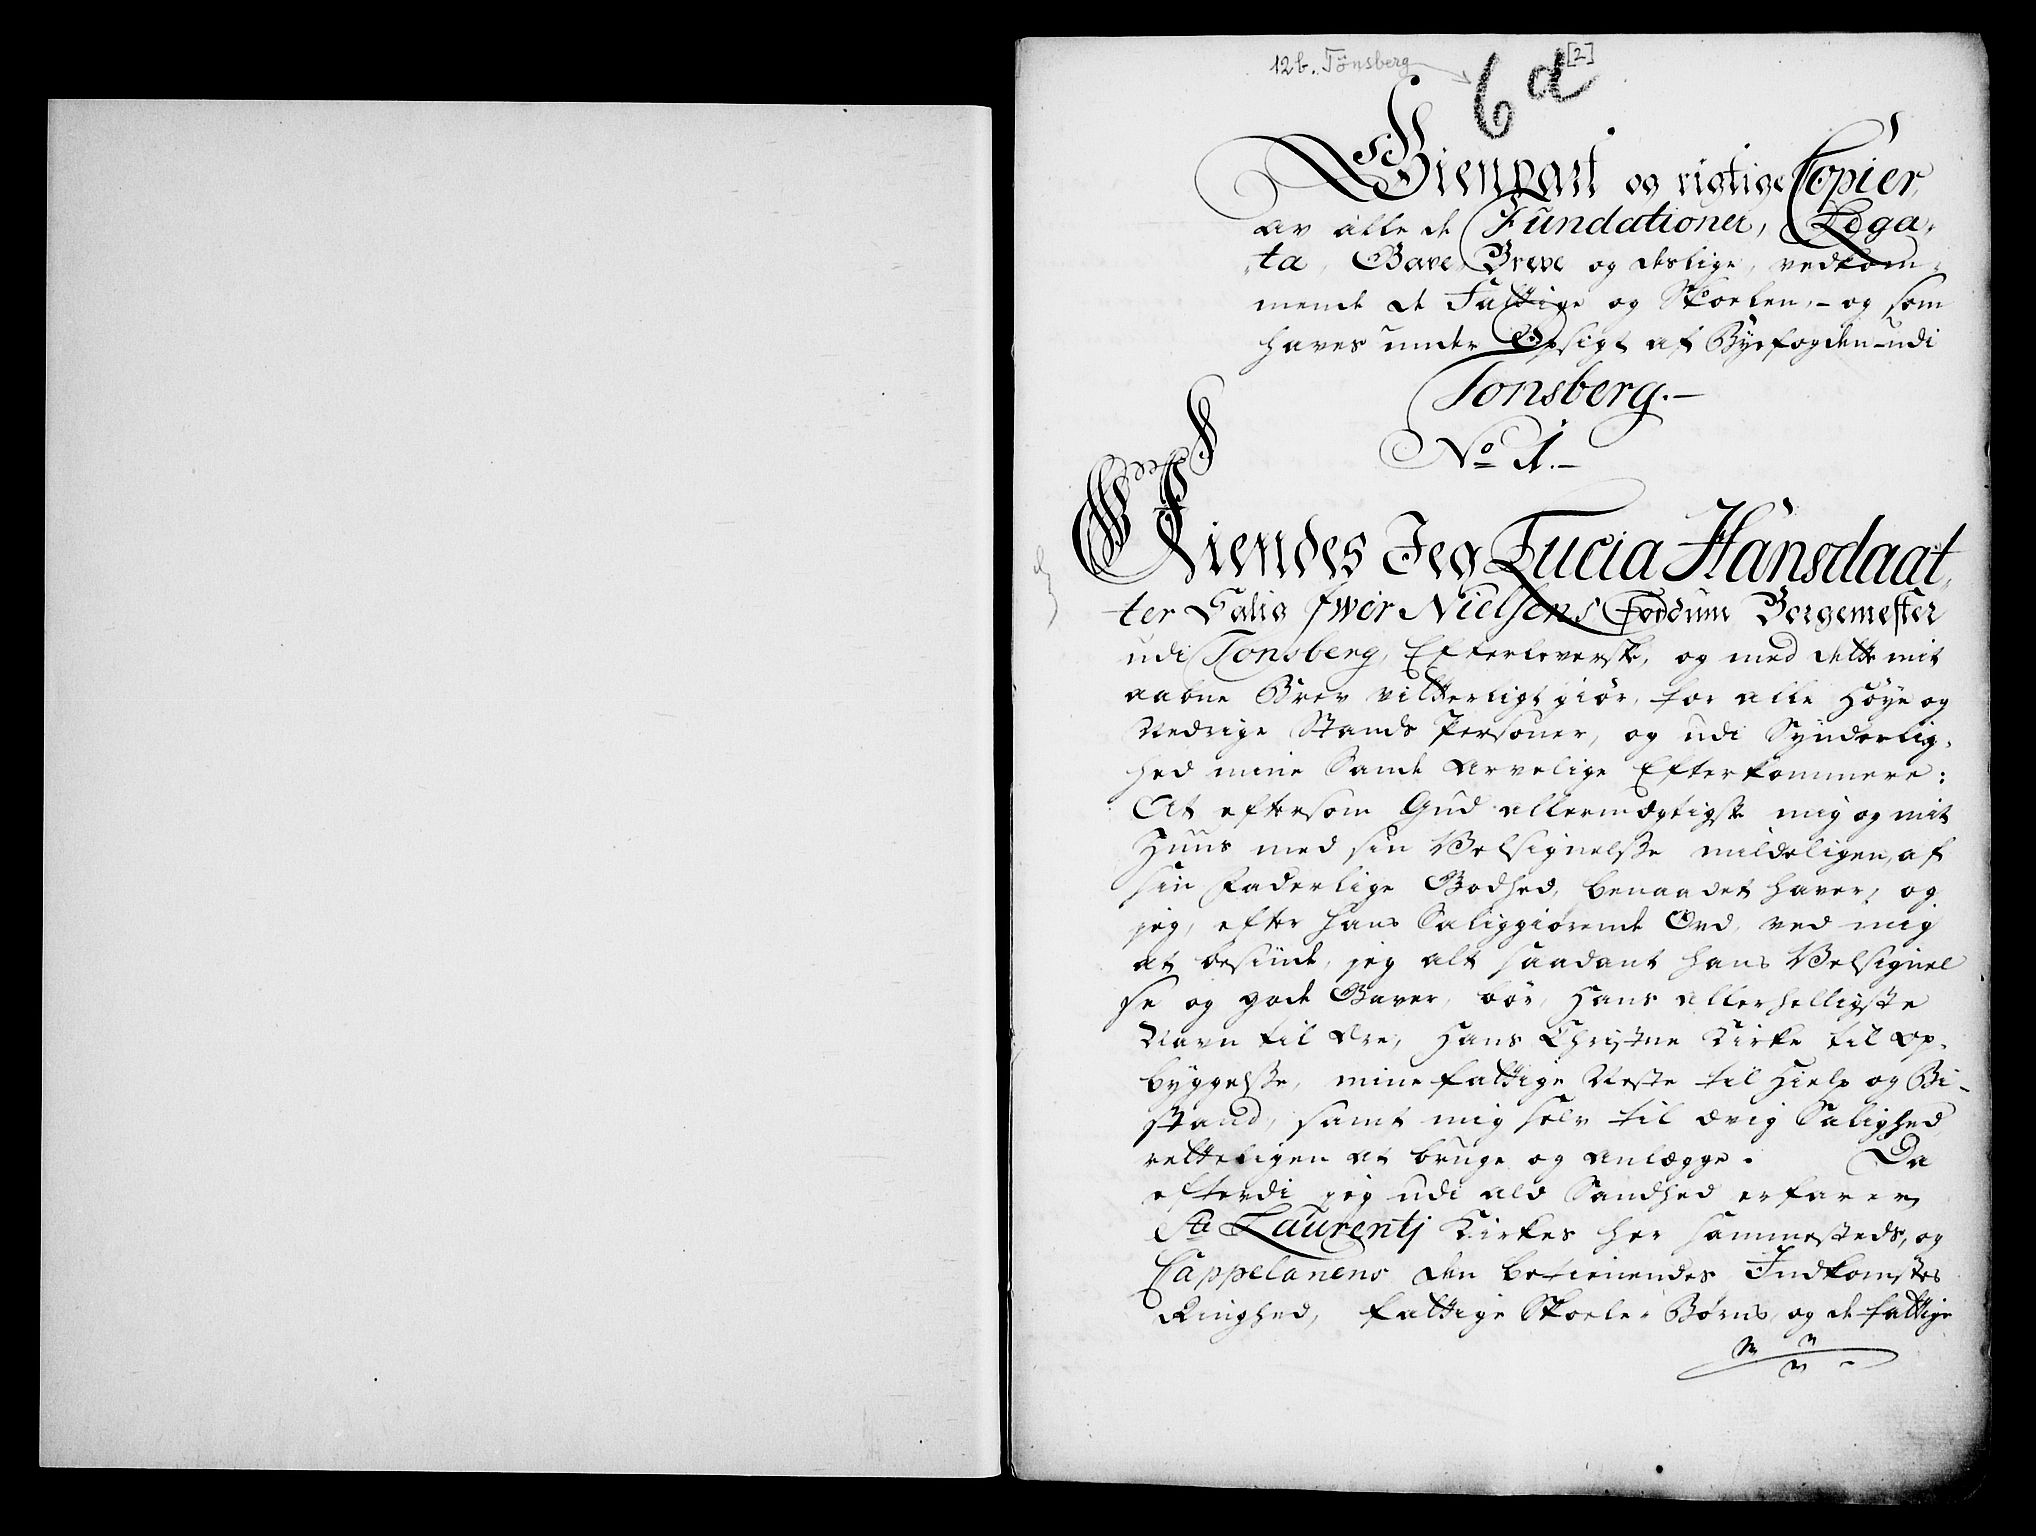 12b. Tönsberg
6 d [2]
Gienpart og rigtige Copier,
av alle de Fundationer, Lega-
ta, Gave Breve og deslige, vedkom-
mende de Fattige og Skoelen,- og som
haves under Opsigt af Byefogden udi
Tonsberg.-
No 1.-
Kiendes Jeg Lucia Hansdaat-
ter Salig Iwer Nielsens Fordum Borgemester
udi Tonsberg, Efterleverske, og med dette mit
aabne Brev vitterligt giør, for alle Høye og
Nedrige Stands Personer, og udi Synderlig-
hed mine Samt. Arvelige Efterkommere:
At eftersom Gud allermægtigste mig og mit
Huus med sin Velsignelsse mildeligen, af
sin Faderlige Godhed, benaadet haver, og
jeg, efter hans Saliggiørende Ord, ved mig
at besinde, jeg alt saadant hans Velsignel
se og gode Gaver, bør, Hans allerhelligste
Navn til Ære, Hans Christne Kirke til Op-
byggelsse, mine fattige Neste til Hielp og Bi-
stand, samt mig selv til ævig Salighed,
retteligen at bruge og anlægge. Da
efterdi jeg udi ald Sandhed erfarer,
Sti Laurentj Kirkes her sammesteds, og
Cappelanens den betienendes Indkomstes
Ringhed, fattige Skoele-Børns, og de fattige